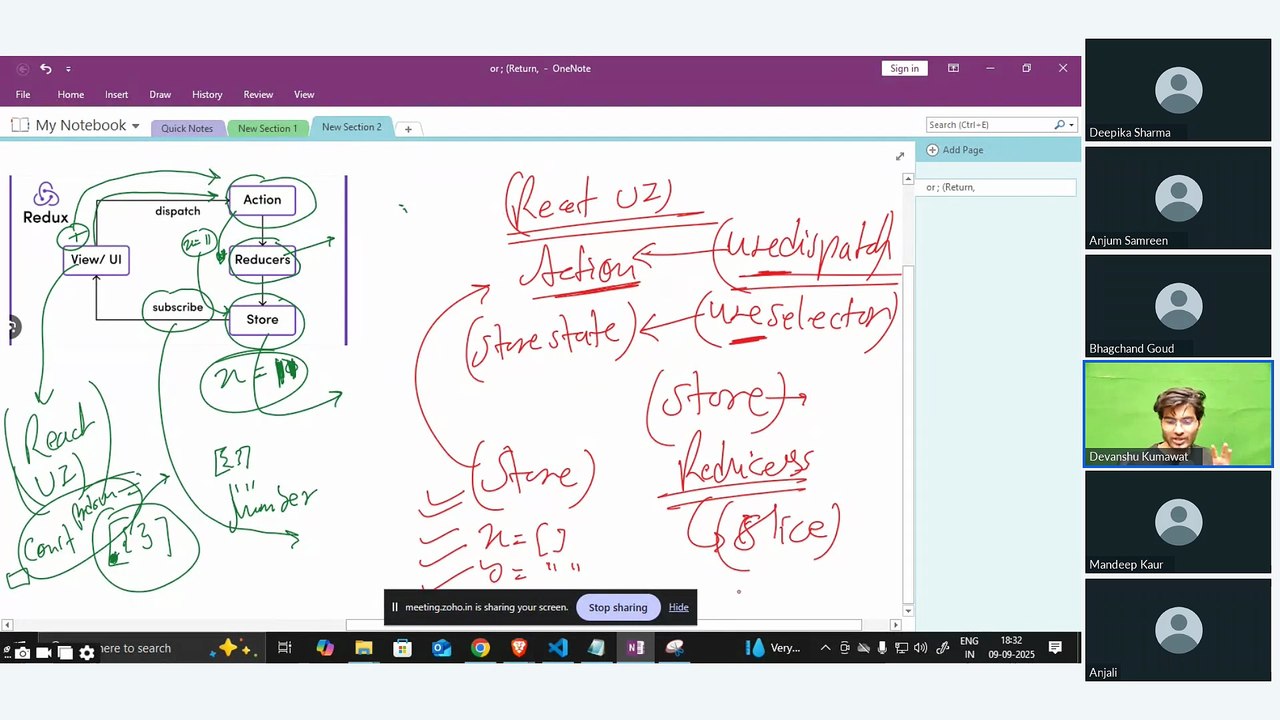 or ; (Return, - OneNote
Sign in
File Home Insert Draw History Review View
My Notebook
Quick Notes
New Section 1
New Section 2
Search (Ctrl+E)
Add Page
or ; (Return,
Redux
dispatch
Action
View/ UI
Reducers
subscribe
Store
+
(React UI)
Action
(usedispatch
(store state)
(useselector)
(store)
Reducers
(Slice)
(Store)
x = []
y = " "
(React
UI)
const
[{}]
[{}]
" "
Number
meeting.zoho.in is sharing your screen.
Stop sharing
Hide
here to search
Very...
ENG
IN
18:32
09-09-2025
Deepika Sharma
Anjum Samreen
Bhagchand Goud
Devanshu Kumawat
Mandeep Kaur
Anjali